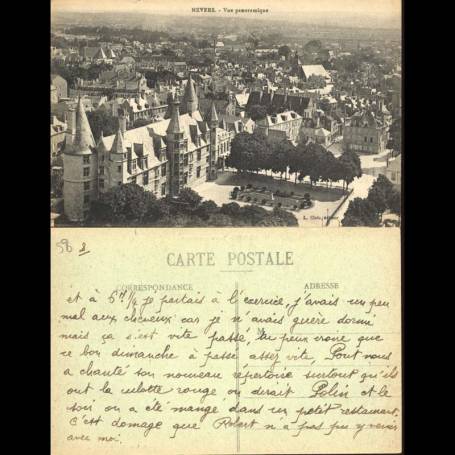 NEVERS. - Vue panoramique
L. Clair, éditeur
58 2
CARTE POSTALE
CORRESPONDANCE
ADRESSE
et à 5H ½ je partais à l'exercice, j'avais un peu
mal aux cheveux car je n'avais guère dormi
mais ça s'est vite passé, tu peux croire que
ce bon dimanche à passé assez vite, Pout nous
a chanté son nouveau répertoire surtout qu'ils
ont la culotte rouge on dirait Polin et le
soir on a été mangé dans un petit restaurant.
C'est domage que Robert n'a pas pu y venir
avec moi.